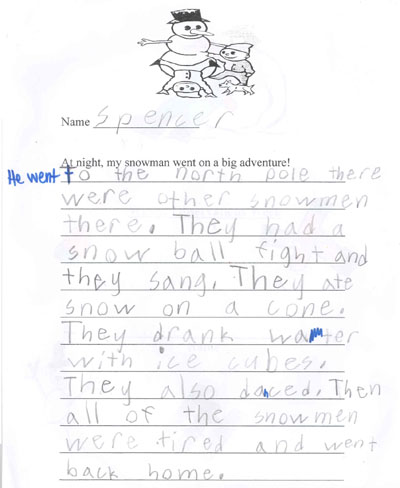 Name Spencer
At night, my snowman went on a big adventure!
He went to the north pole there
were other snowmen
there. They had a
snow ball fight and
they sang. They ate
snow on a cone.
They drank water
with ice cubes.
They also danced. Then
all of the snowmen
were tired and went
back home.